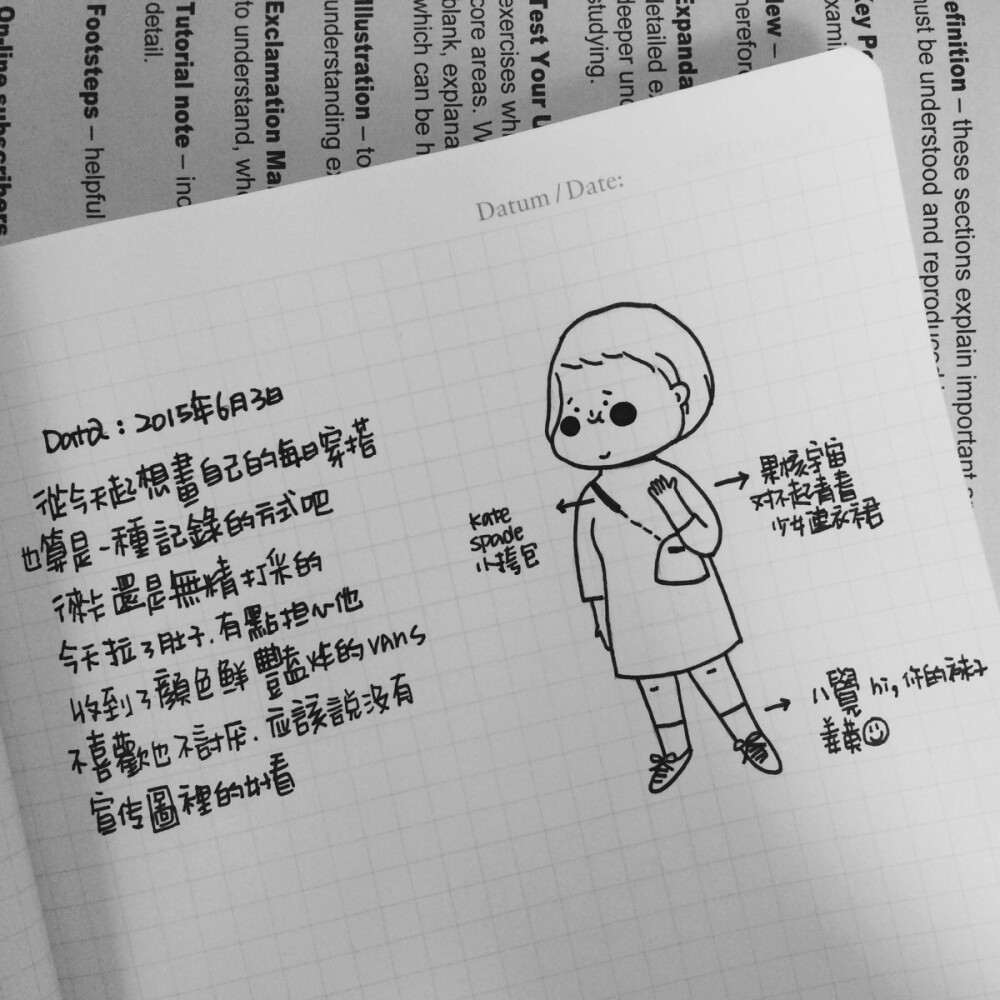 On-line subscribers
Footsteps – helpful
Tutorial note – inc
detail.
Exclamation Ma
to understand, who
Illustration – to
understanding ex
Test Your U
exercises wh
core areas. W
blank, explana
which can be h
Expanda
detailed ex
deeper und
studying.
New –
herefore
Key Po
exami
efinition – these sections explain important
must be understood and reproduced
Datum / Date:
Data : 2015年6月3日
從今天起想畫自己的每日穿搭
也算是一種記錄的方式吧
還是無精打采的
今天拉了肚子.有點担心他
收到了顏色鮮豔炸的vans
不喜歡也不討厌.应該說没有
宣传圖裡的好看
kate
spade
小挎包
果核宇宙
对不起青春
少女連衣裙
八覺 hi, 你的袜子